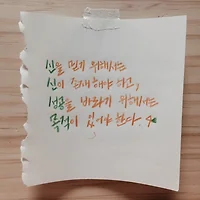 신을 믿기 위해서는
신이 존재해야 하고,
성공을 바라기 위해서는
목적이 있어야 한다.